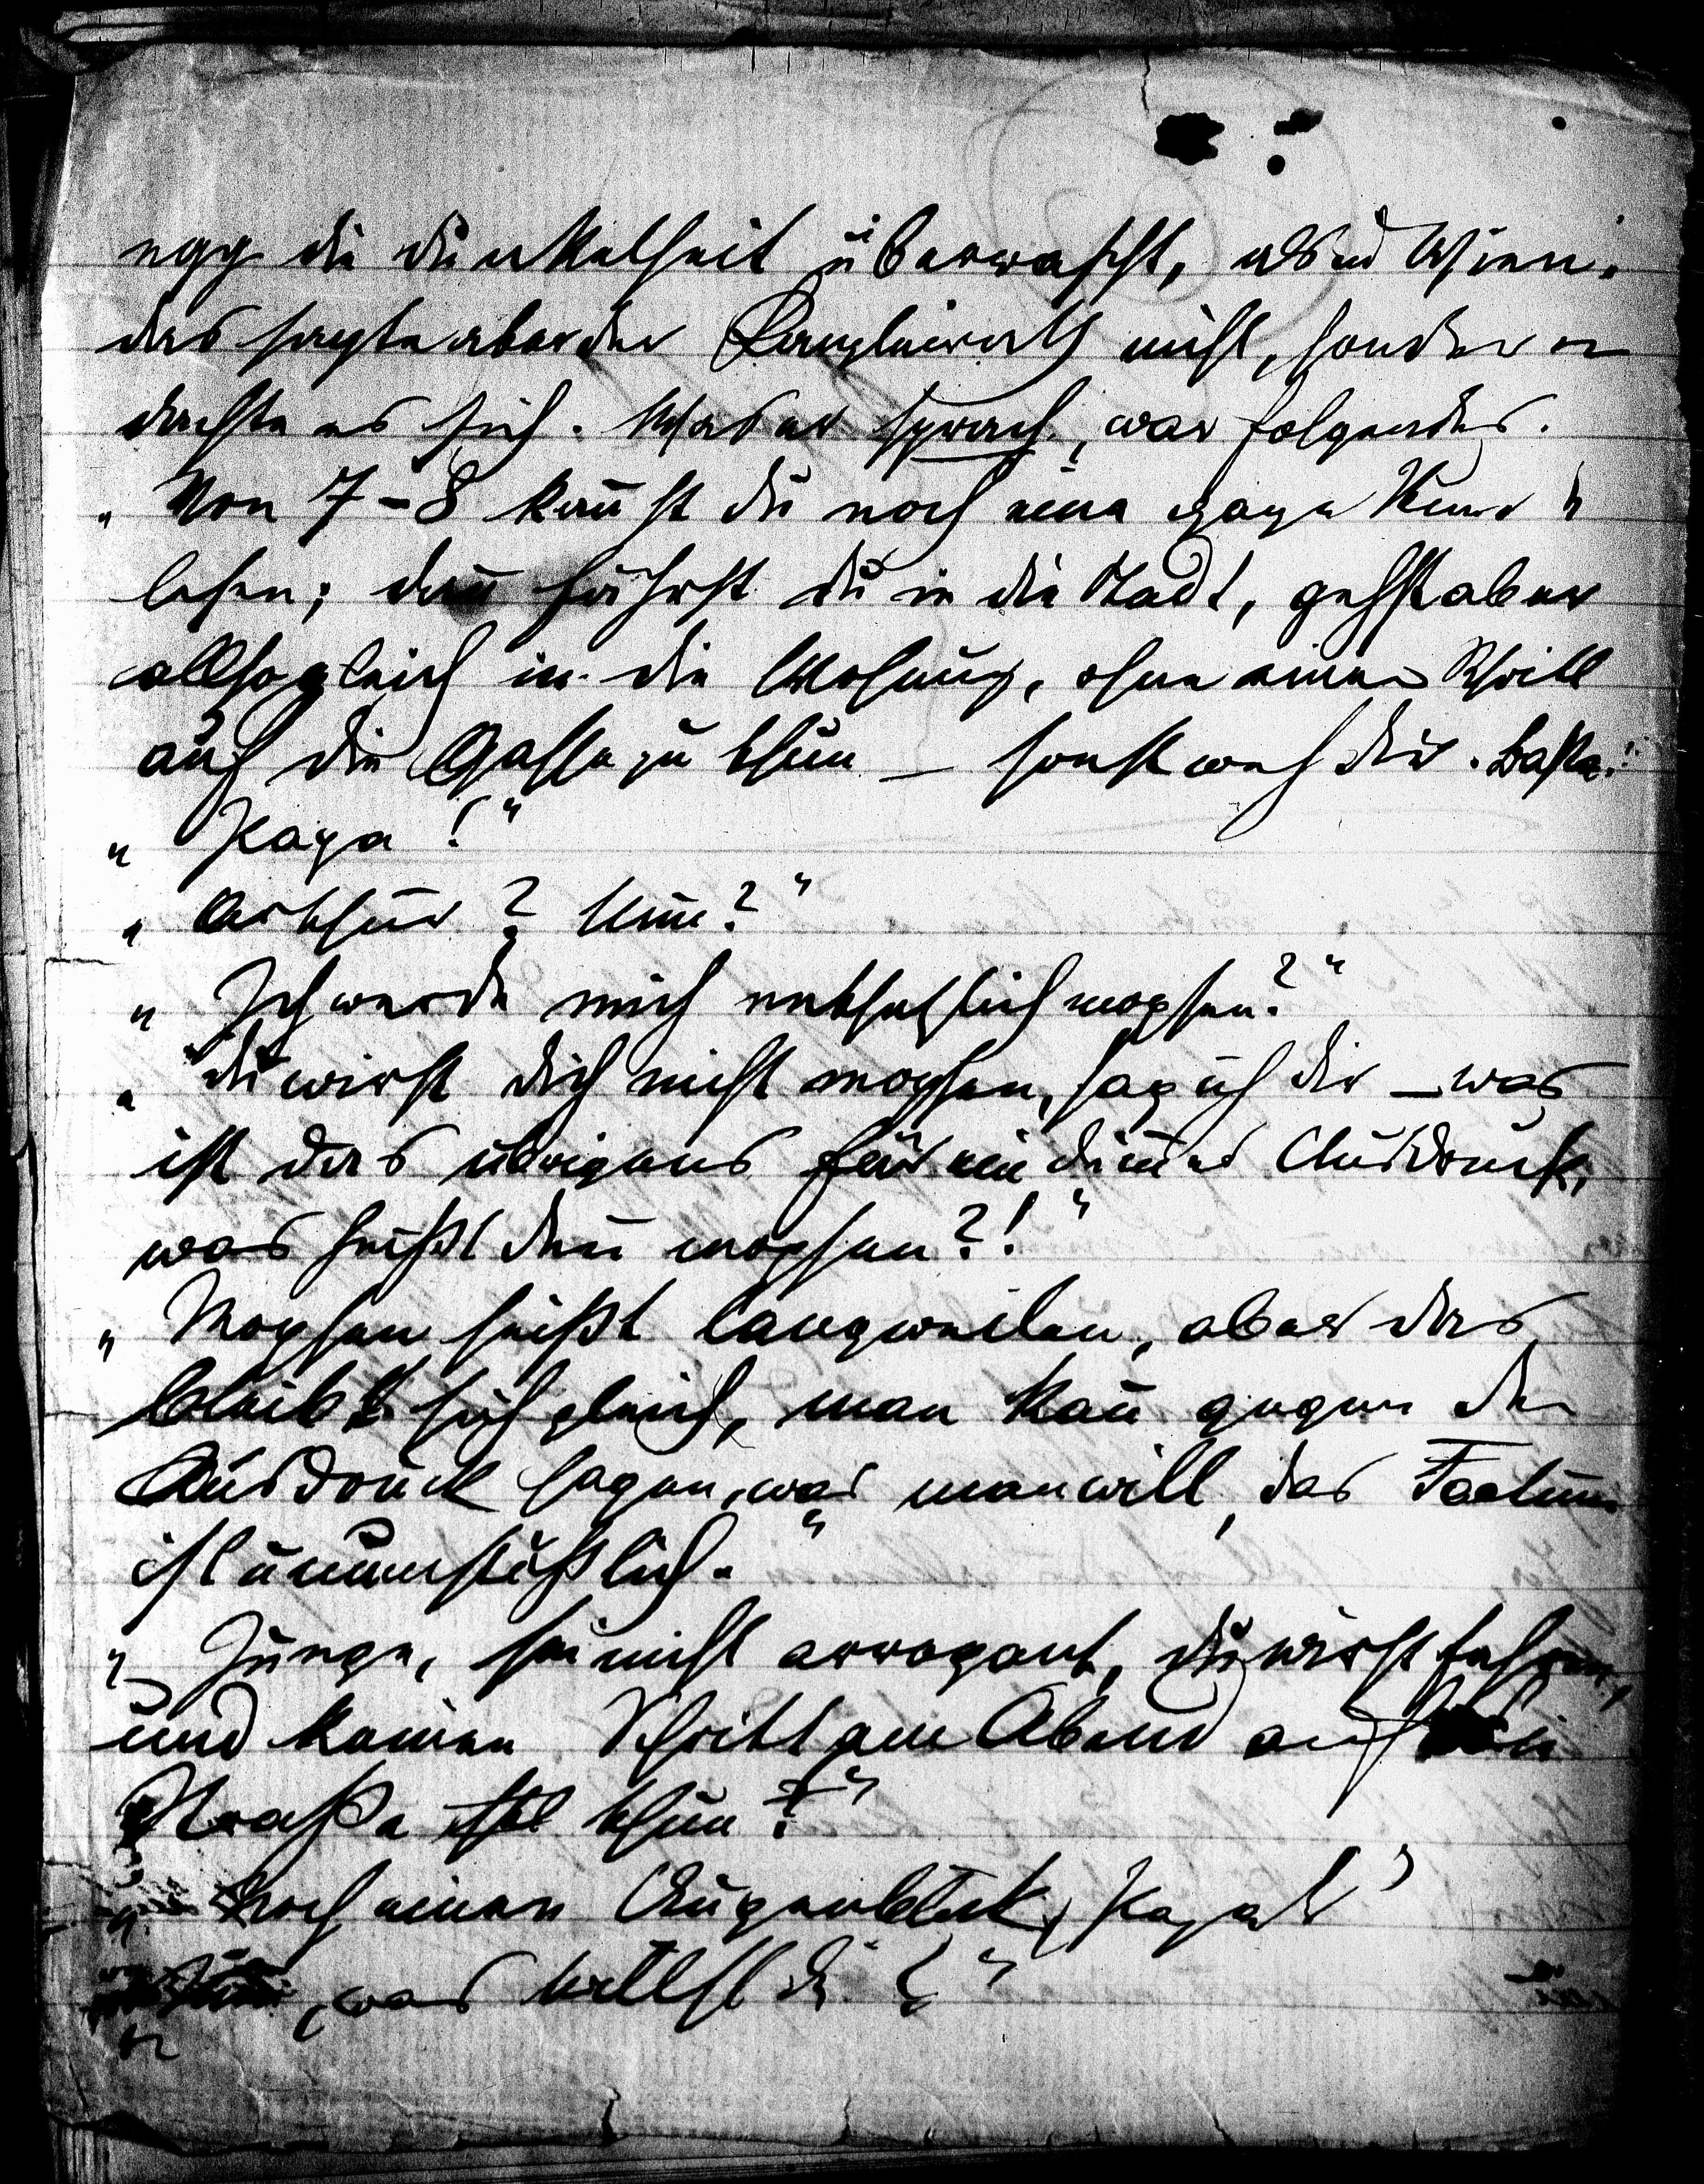 egg die Dunkelheit überrascht, als in Wien.
das sagte aber der Kanzleirath nicht, sondern er
dachte es sich. Was er sprach, war folgendes.
„Von 7-8 kannst du noch eine ganze Stunde
lesen; dann fährst du in die Stadt, gehst aber
allsogleich in die Wohnung, ohne einen Schritt
auf die Gasse zu thun — sonst weh dir. Basta!"
„Papa!"
„Arthur? Nun?"
„Ich werde mich entsetzlich mopsen?"
„Du wirst dich nicht mopsen, sag ich dir — was
ist das übrigens für ein dummer Ausdruck,
was heißt denn mopsen?!"
„Mopsen heißt langweilen, aber das
bleibt sich gleich, man kann gegen den
Ausdruck sagen, was man will, das Factum
ist unumstößlich."
„Junge, sei nicht arrogant, du wirst fahren,
und keinen Schritt am Abend auf die
Straße thun!"
„Noch einen Augenblick, Papa!"
was willst du?"